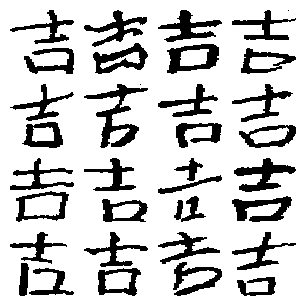 吉吉吉吉
吉吉吉吉
吉吉吉吉
吉吉吉吉